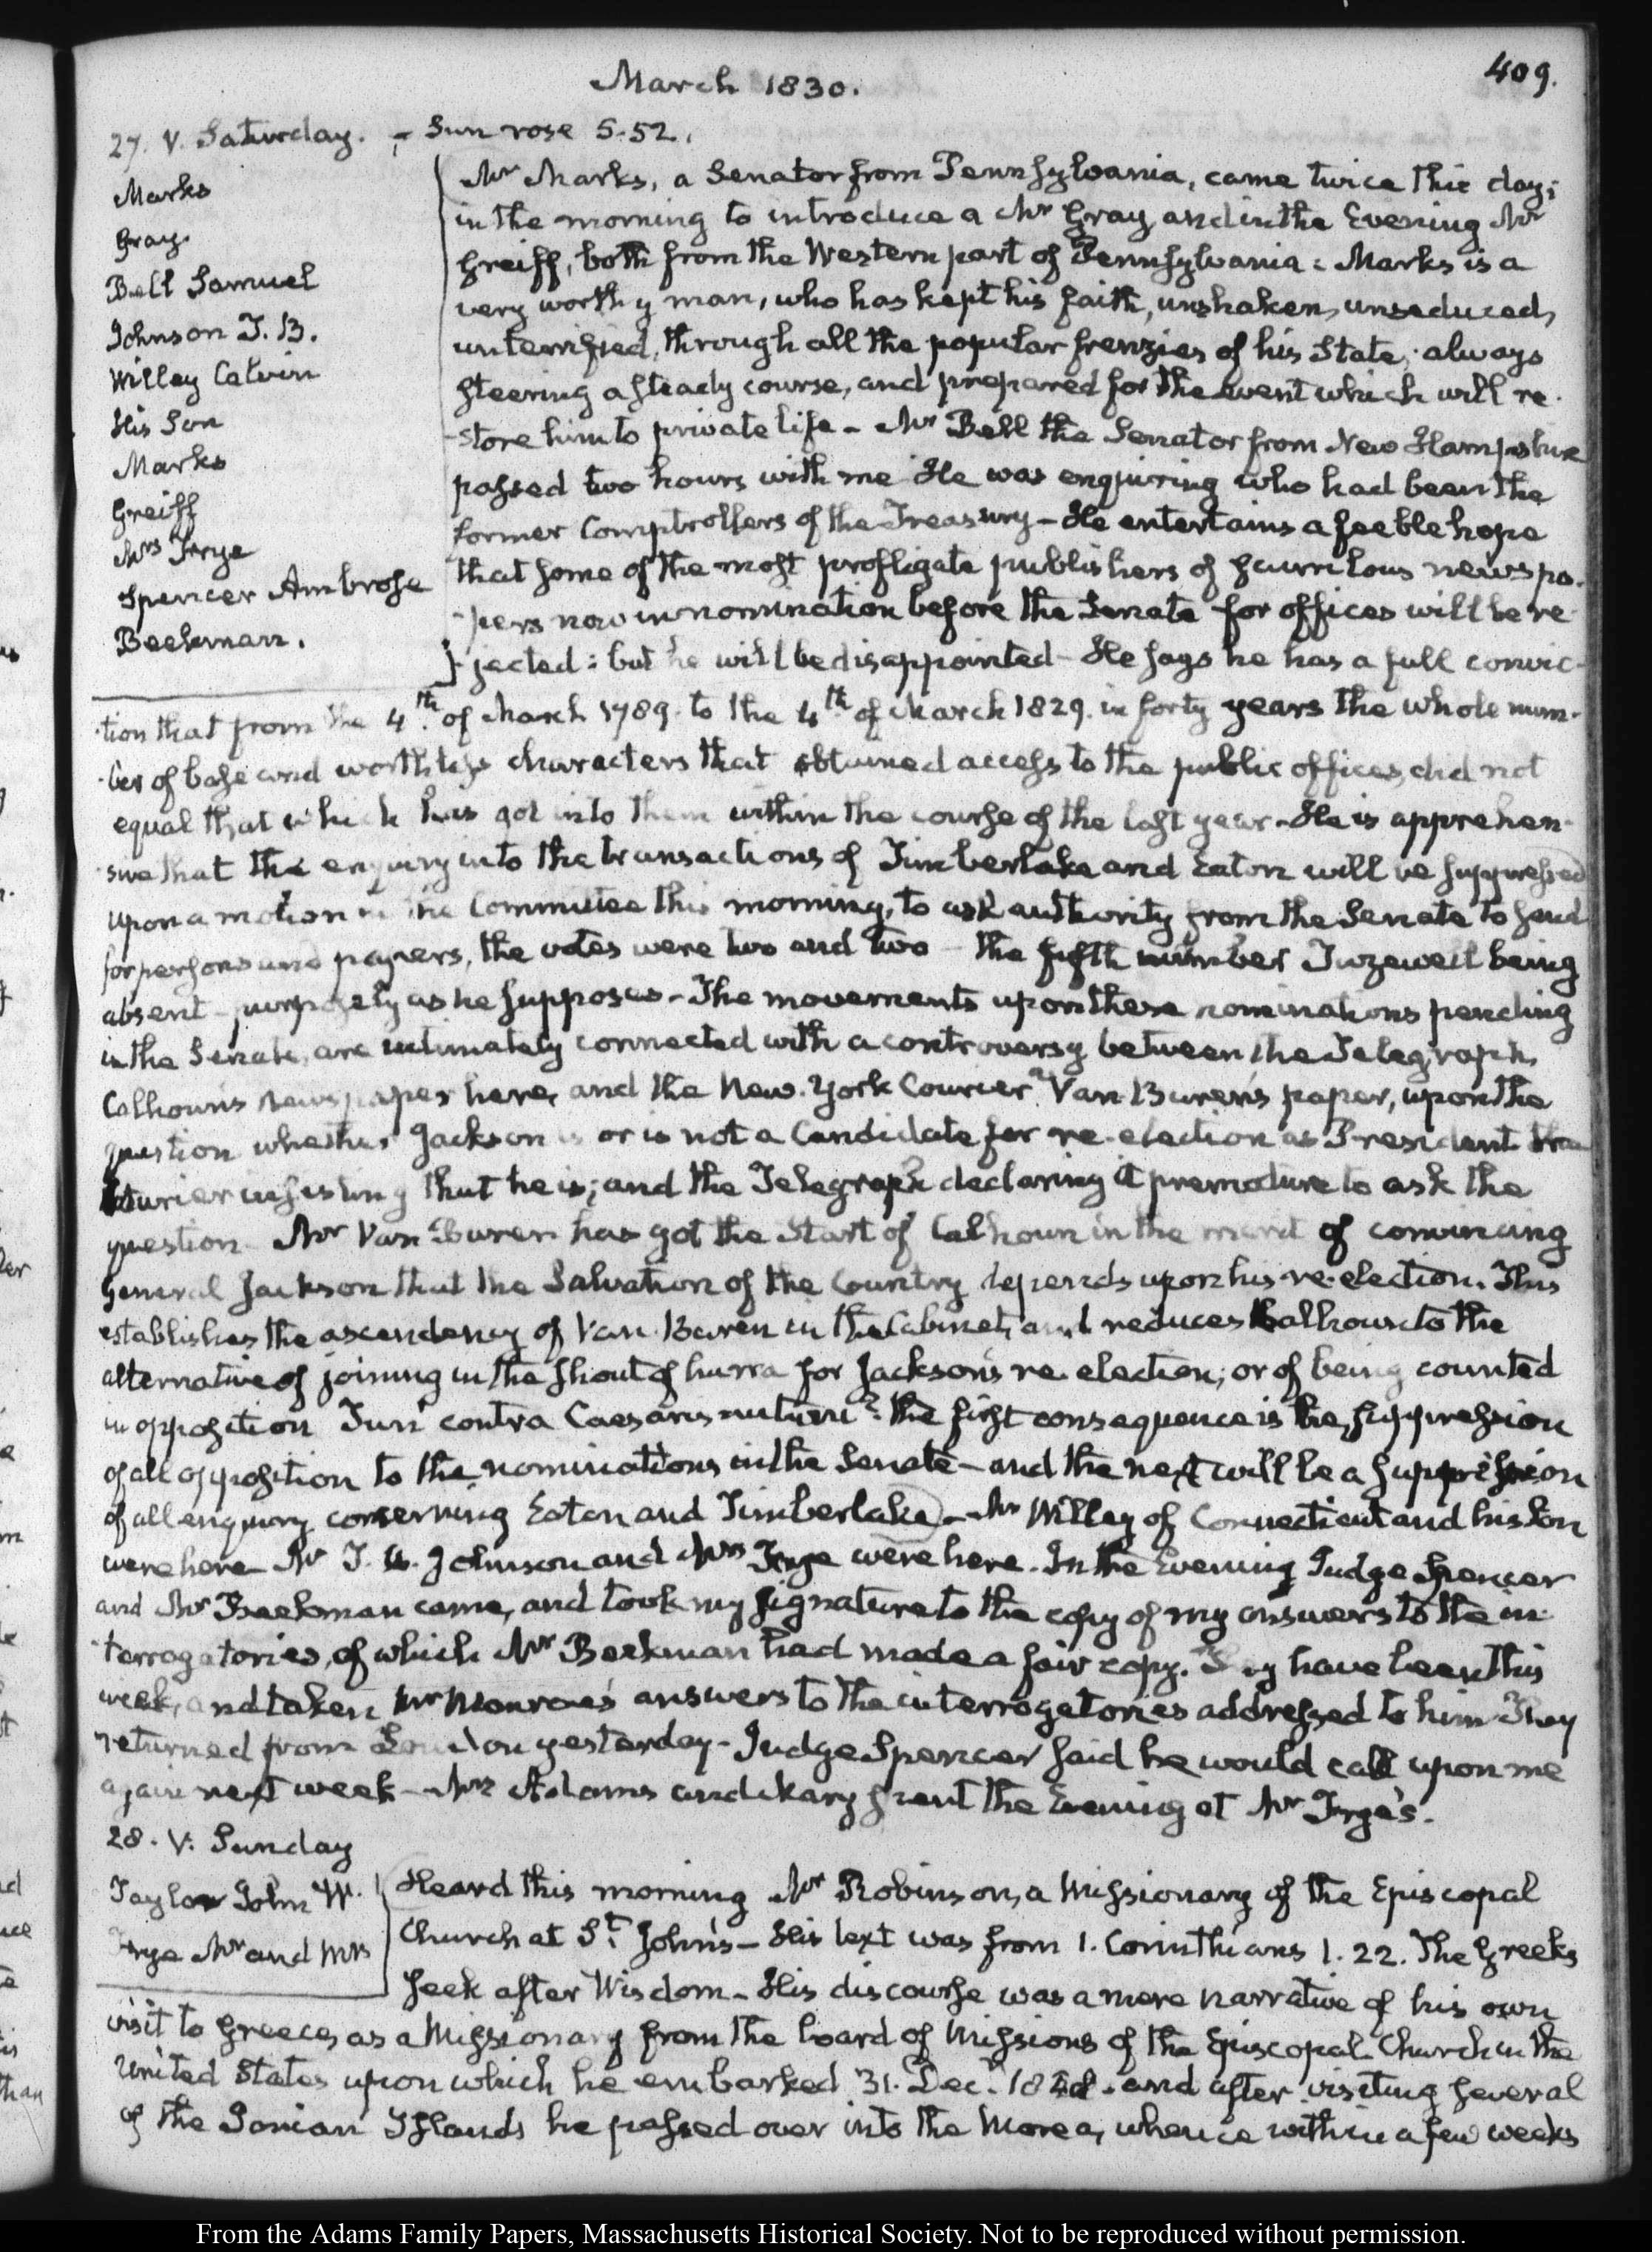 409.
March 1830.
27. V. Saturday. - Sun rose 5-52.
Marks
Gray.
Bell Samuel
Johnson J. B.
Willey Calvin
His Son
Marks
Greiff
Mrs Frye
Spencer Ambrose
Beekman.
Mr Marks, a Senator from Pennsylvania, came twice this day;
in the morning to introduce a Mr Gray, and in the Evening Mr
Greiff, both from the Western part of Pennsylvania: Marks is a
very worthy man, who has kept his faith, unshaken, unseduced,
unterrified, through all the popular frenzies of his State; always
steering a steady course, and prepared for the event which will re-
-store him to private life - Mr Bell the Senator from New Hampshire
passed two hours with me He was enquiring who had been the
former Comptrollers of the Treasury - He entertains a feeble hope
that some of the most profligate publishers of scurrilous newspa-
-pers now in nomination before the Senate for offices will be re-
-jected: but he will be disappointed - He says he has a full convic-
-tion that from the 4th. of March 1789. to the 4th. of March 1829. in forty years the whole num-
-ber of base and worthless characters that obtained access to the public offices, did not
equal that which has got into them within the course of the last year - He is apprehen-
-sive that the enquiry into the transactions of Timberlake and Eaton will be suppressed
upon a motion in the Committee this morning, to ask authority from the Senate to send
for persons and papers, the votes were two and two - the fifth member Tazewell being
absent - purposely as he supposes - The movements upon these nominations pending
in the Senate, are intimately connected with a controversy between the Telegraph,
Calhoun's newspaper here, and the New-York Courier, Van Buren's paper, upon the
question whether Jackson is or is not a Candidate for re-election as President the
Courier insisting that he is; and the Telegraph declaring it premature to ask the
question - Mr Van Buren has got the start of Calhoun in the merit of convincing
General Jackson that the Salvation of the Country depends upon his re-election. This
establishes the ascendency of Van Buren in the Cabinet, and reduces Calhoun to the
alternative of joining in the shout of hurra for Jackson's re-election; or of being counted
in opposition Tun' contra Caesaris nutum? the first consequence is the suppression
of all opposition to the nominations in the Senate - and the next will be a suppression
of all enquiry concerning Eaton and Timberlake - Mr Willey of Connecticut and his Son
were here Mr J. B. Johnson and Mrs Frye were here. In the Evening Judge Spencer
and Mr Beekman came, and took my signature to the copy of my answers to the in-
-terrogatories, of which Mr Beekman had made a fair copy. They have been this
week, and taken Mr Monroe's answers to the interrogatories addressed to him They
returned from Loudon yesterday - Judge Spencer said he would call upon me
again next week - Mrs Adams and Mary spent the Evening at Mr Frye's.
28. V. Sunday
Taylor John W.
Frye Mr and Mrs
Heard this morning Mr Robinson, a Missionary of the Episcopal
Church at St. John's - His text was from 1. Corinthians 1. 22. The Greeks
seek after Wisdom - His discourse was a mere narrative of his own
visit to Greece, as a Missionary from the board of Missions of the Episcopal Church in the
United States upon which he embarked 31. Decr. 1828. and after visiting several
of the Ionian Islands he passed over into the Morea, whence within a few weeks
From the Adams Family Papers, Massachusetts Historical Society. Not to be reproduced without permission.